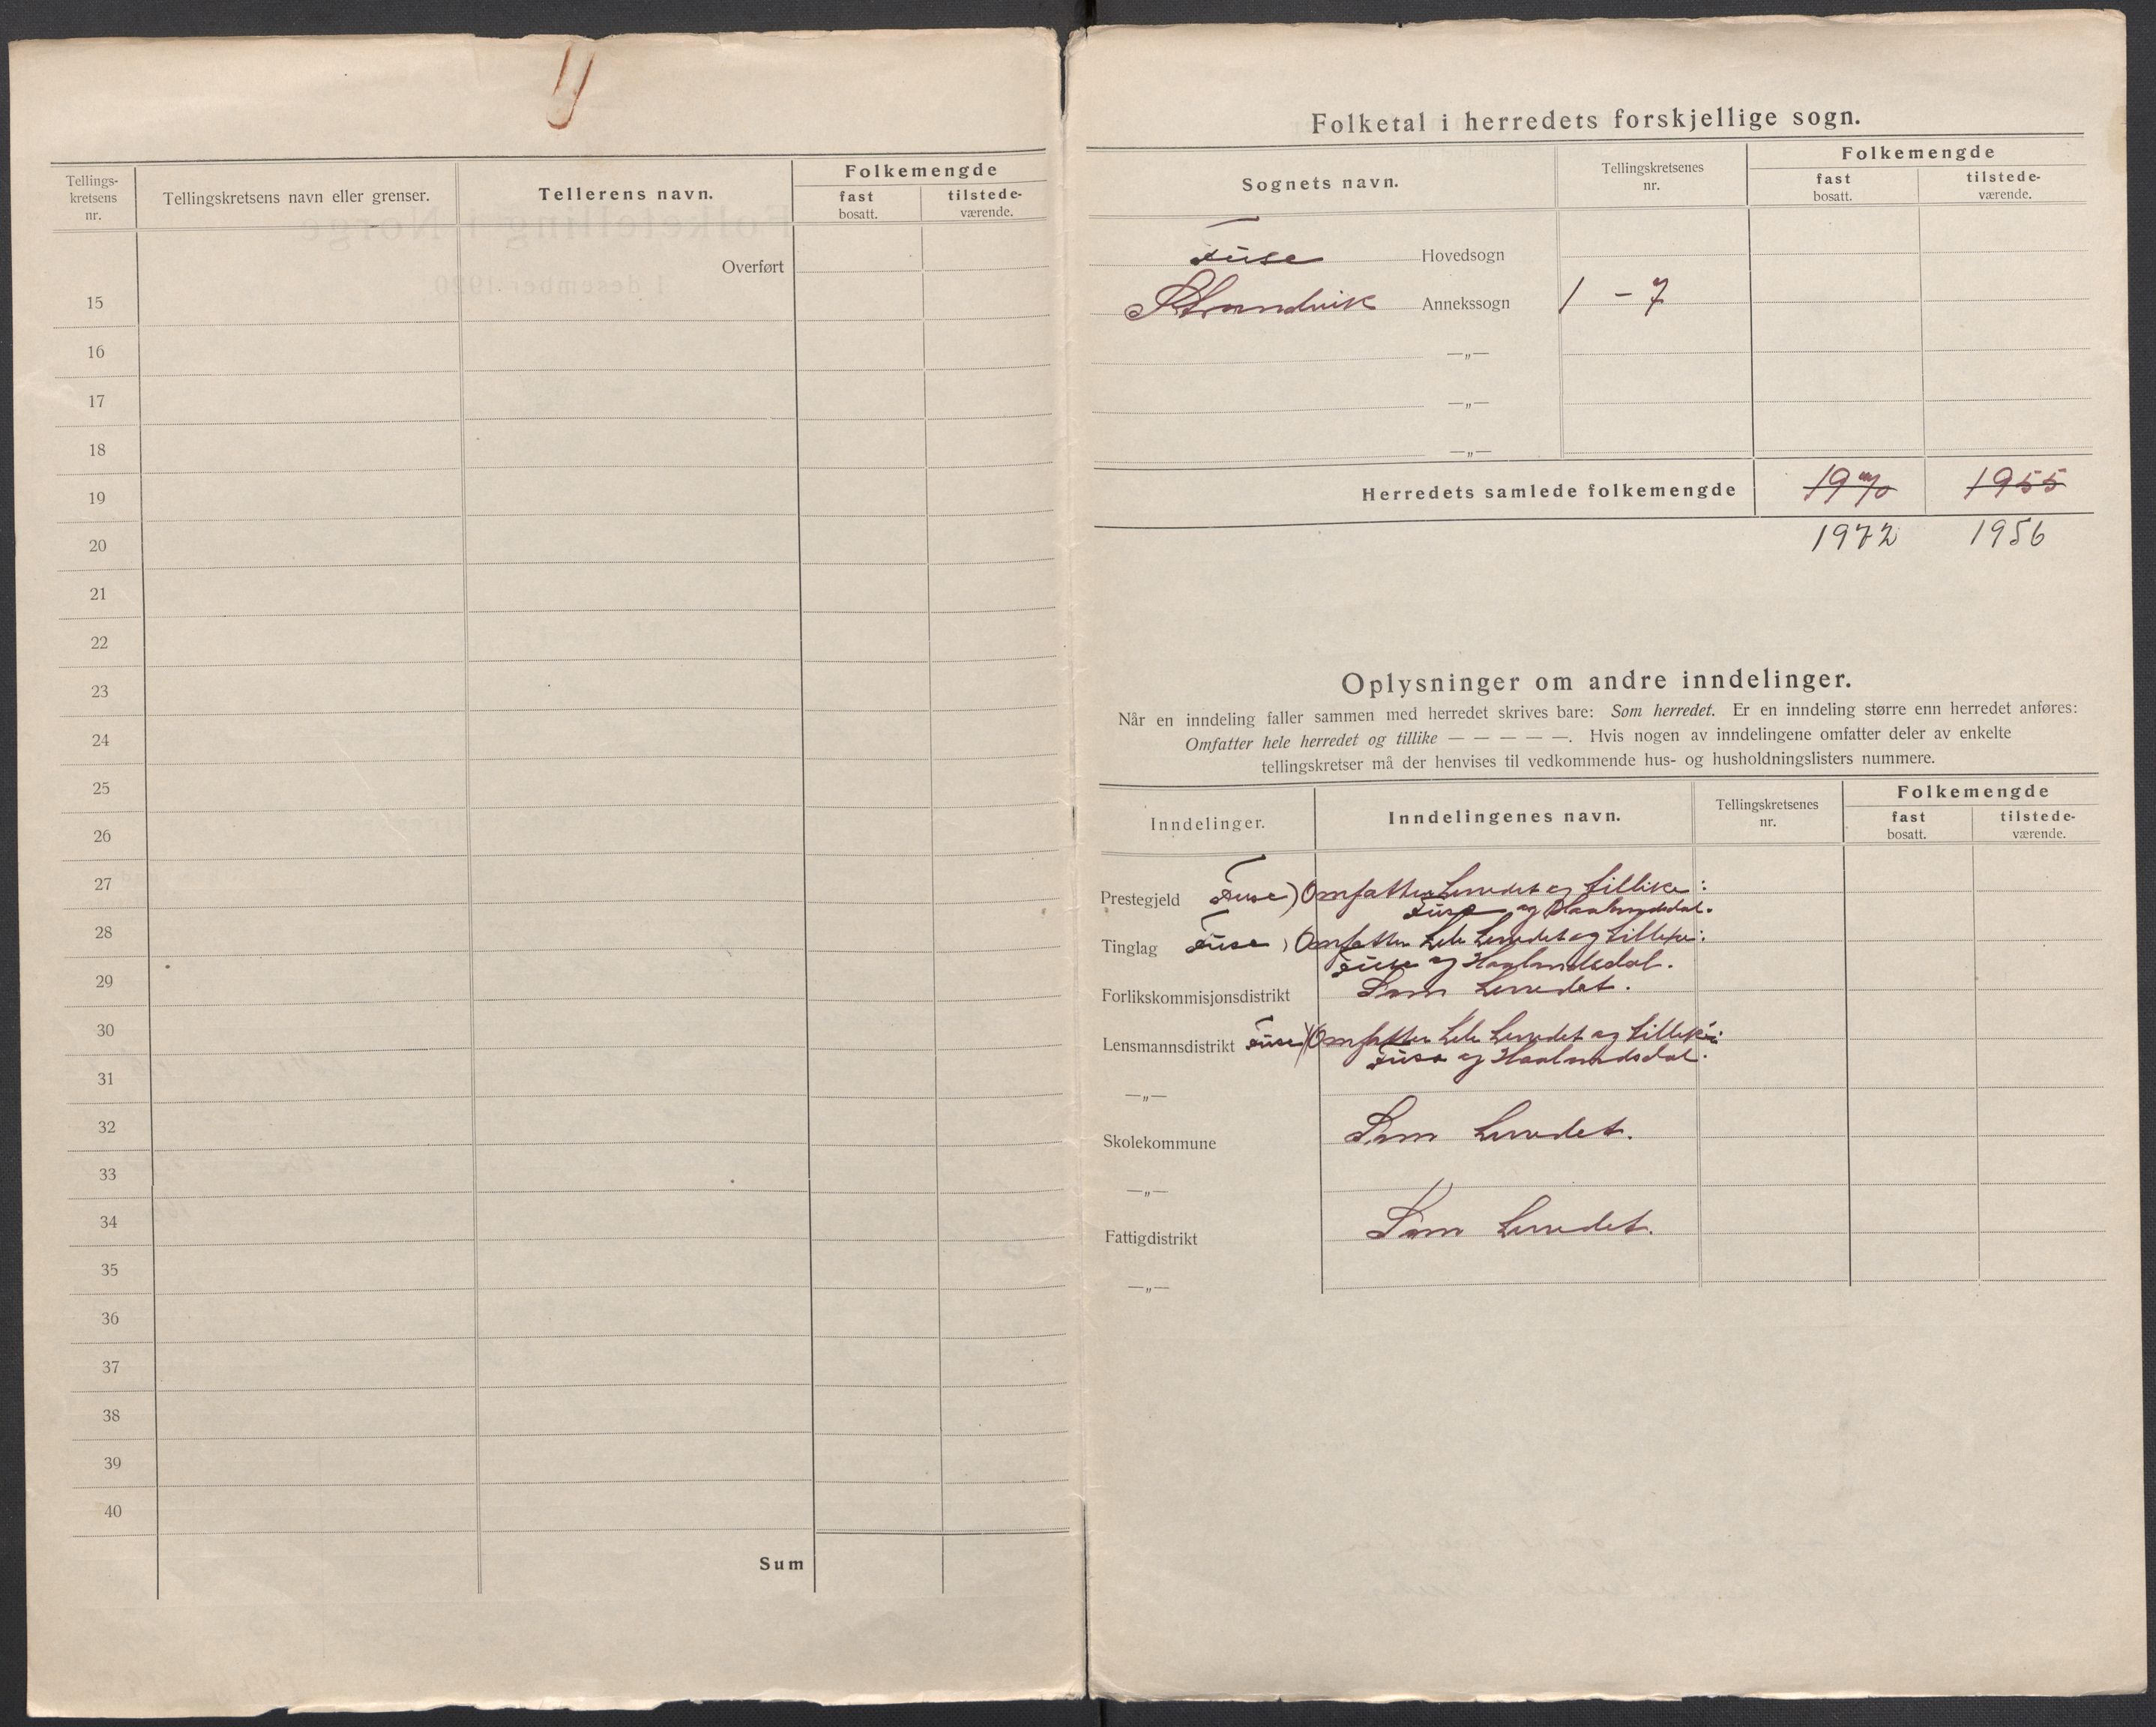 Tellings-
kretsens
nr.
Tellingskretsens navn eller grenser.
Tellerens navn.
Folkemengde
fast
bosatt.
tilstede-
værende.
Overført
15
16
17
18
19
20
21
22
23
24
25
26
27
28
29
30
31
32
33
34
35
36
37
38
39
40
Sum
Folketal i herredets forskjellige sogn.
Sognets navn.
Tellingskretsenes
nr.
Folkemengde
fast
bosatt.
tilstede-
værende.
Fuse Hovedsogn
Strandvik Annekssogn 1 - 7
—„—
—„—
—„—
Herredets samlede folkemengde 1970 1955
1972 1956
Oplysninger om andre inndelinger.
Når en inndeling faller sammen med herredet skrives bare: Som herredet. Er en inndeling større enn herredet anføres:
Omfatter hele herredet og tillike — — — — —. Hvis nogen av inndelingene omfatter deler av enkelte
tellingskretser må der henvises til vedkommende hus- og husholdningslisters nummere.
Inndelinger.
Inndelingenes navn.
Tellingskretsenes
nr.
Folkemengde
fast
bosatt.
tilstede-
værende.
Prestegjeld Fuse) Omfatter herredet og tillike:
Fuse og Haalandsdal.
Tinglag Fuse) Omfatter hele herredet og tillike:
Fuse og Haalandsdal.
Forlikskommisjonsdistrikt Som herredet.
Lensmannsdistrikt Fuse) Omfatter hele herredet og tillike:
Fusa og Haalandsdal.
—„—
Skolekommune Som herredet.
—„—
Fattigdistrikt Som herredet.
—„—